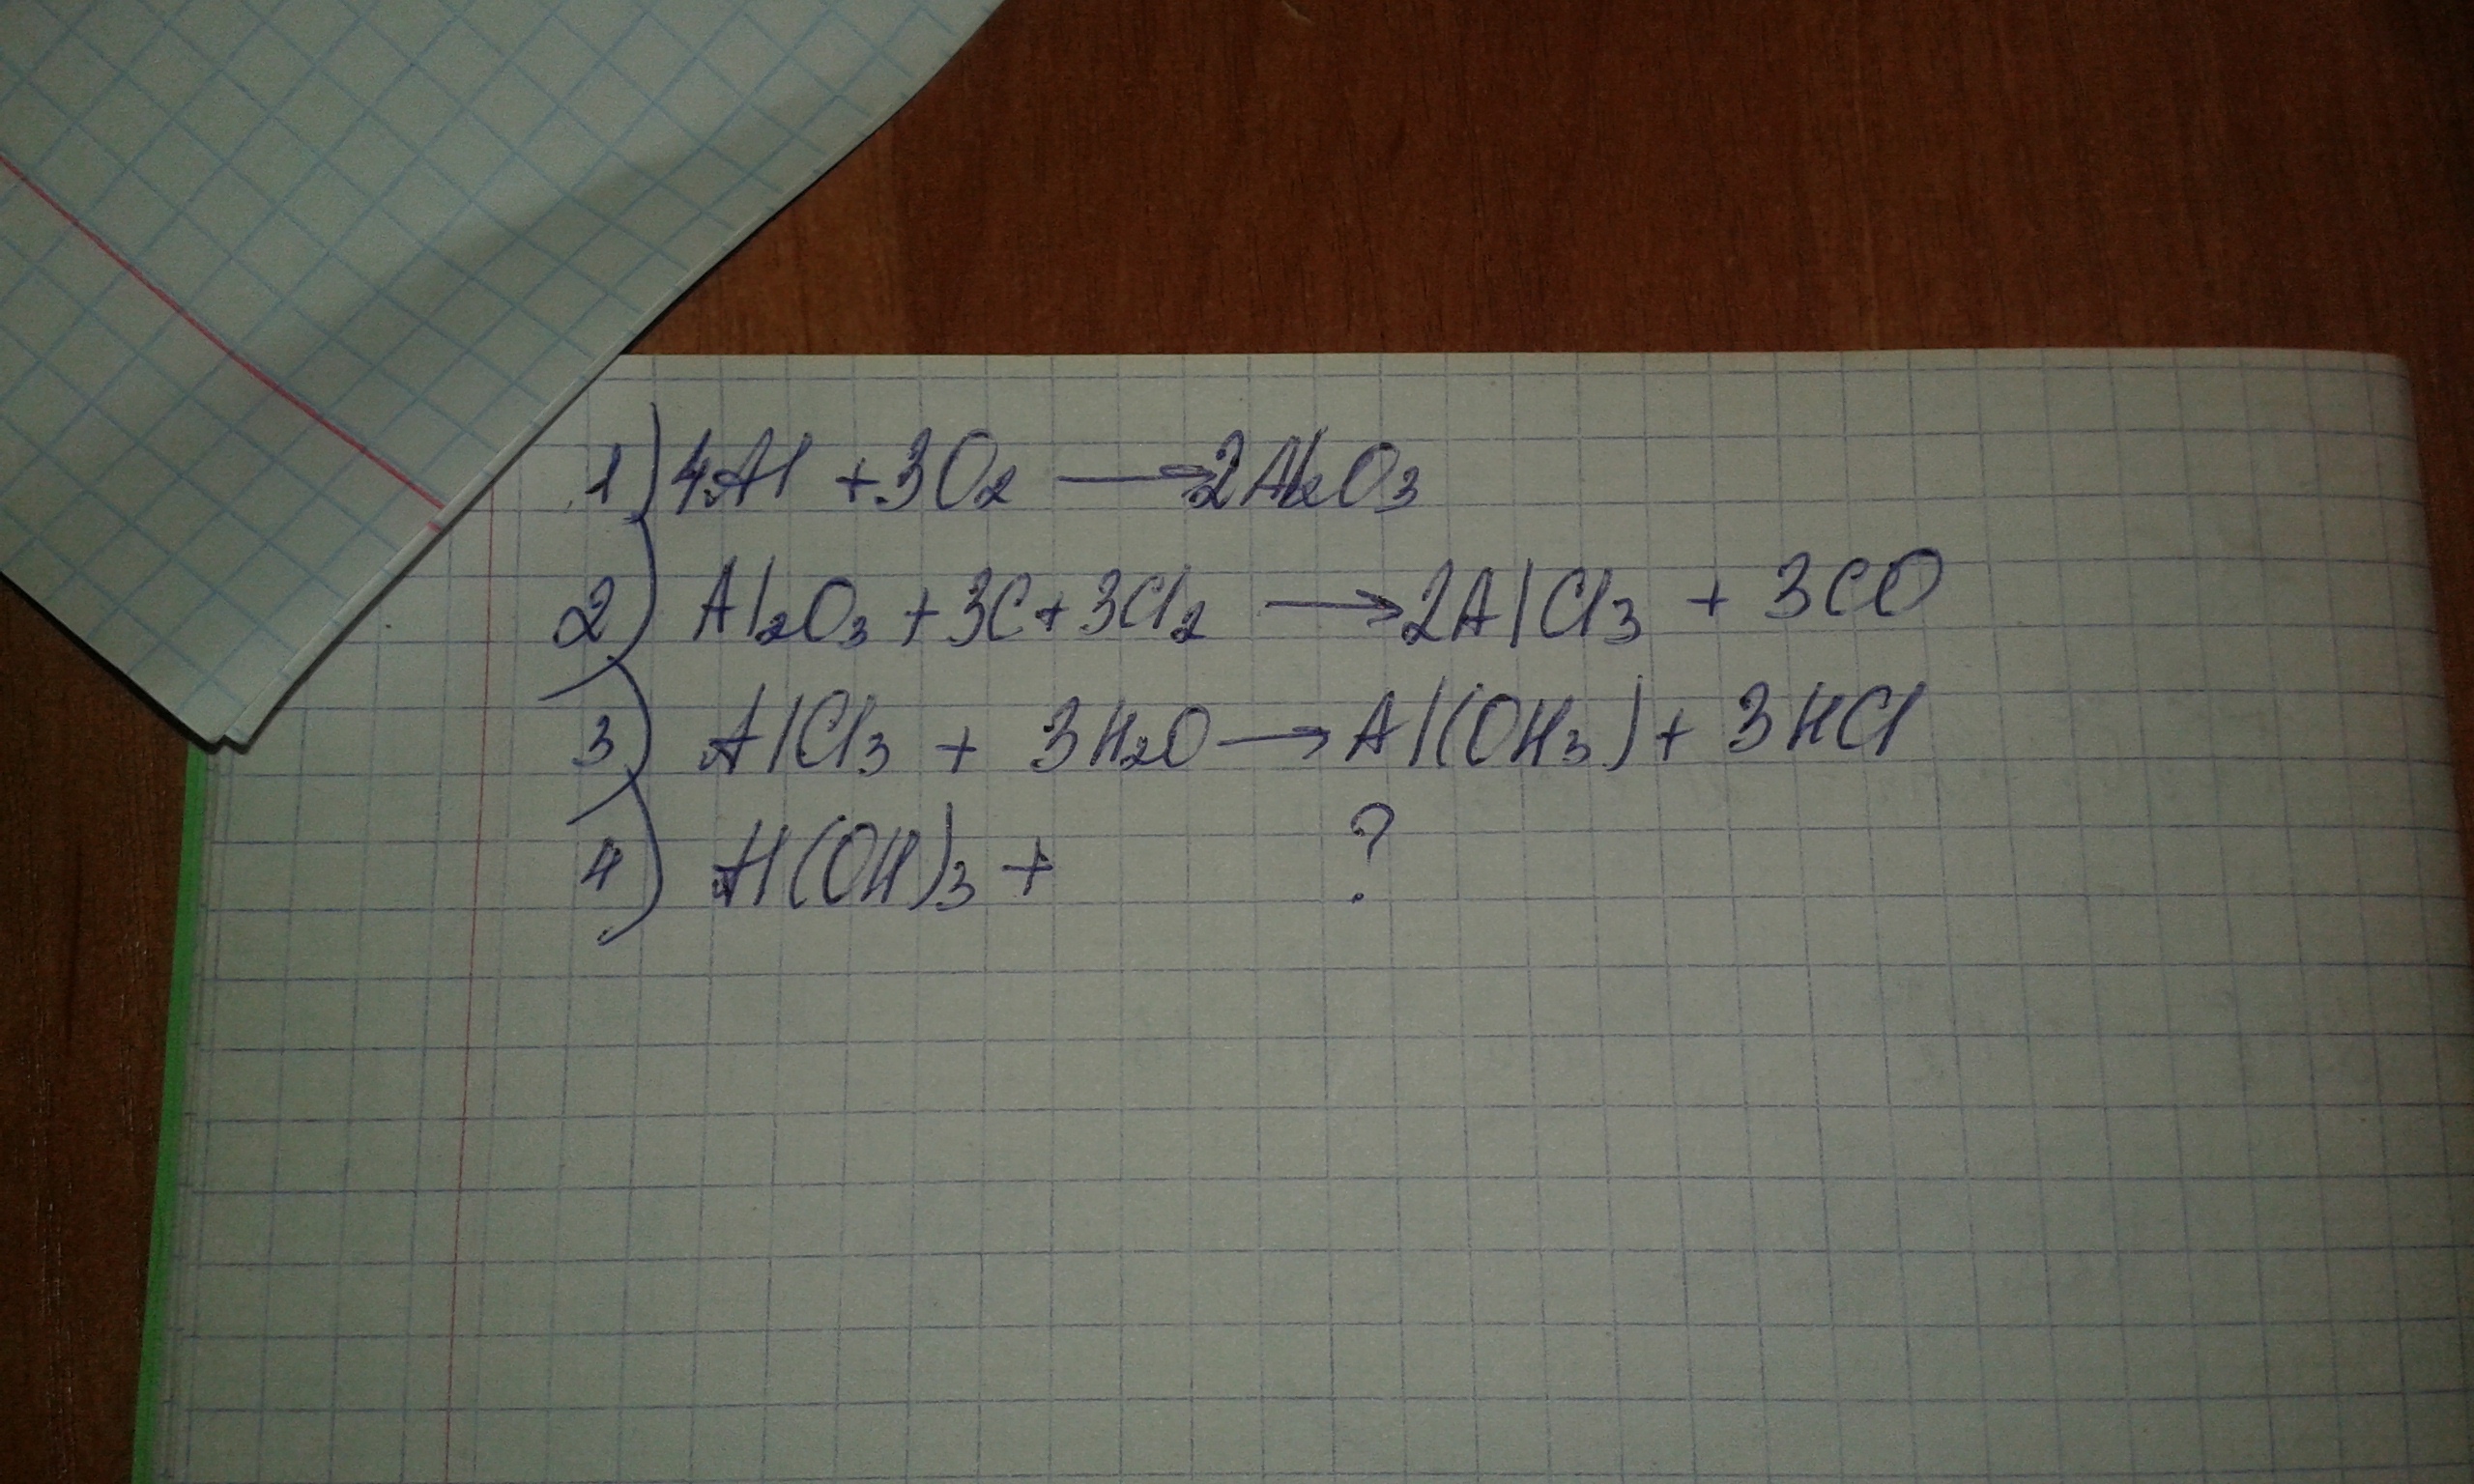 1) 4Al + 3O₂ → 2Al₂O₃
2) Al₂O₃ + 3C + 3Cl₂ → 2AlCl₃ + 3CO
3) AlCl₃ + 3H₂O → Al(OH₃) + 3HCl
4) Al(OH)₃ + ?